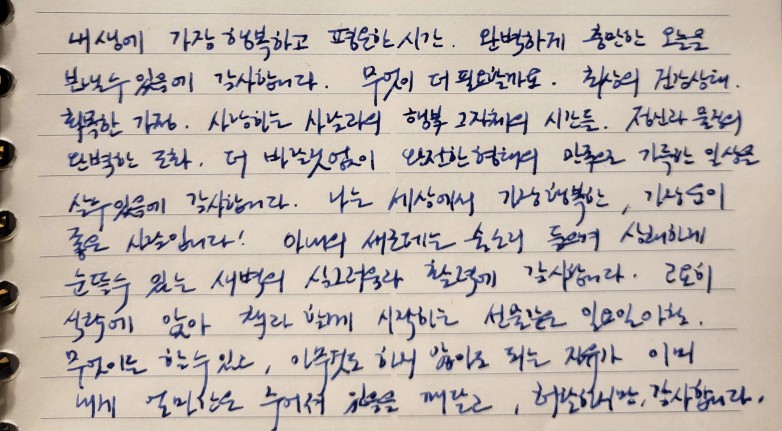 내 생에 가장 행복하고 평온한 시간. 완벽하게 충만한 오늘을
보낼수 있음에 감사합니다. 무엇이 더 필요할까요. 최상의 건강상태.
화목한 가정. 사랑하는 사람과의 행복 그자체의 시간들. 정신과 물질의
완벽한 조화. 더 바랄것 없이 완전한 형태의 만족으로 가득한 일상을
살수 있음에 감사합니다. 나는 세상에서 가장 행복한, 가장 운이
좋은 사람입니다! 아내의 새근대는 숨소리 들으며 상쾌하게
눈뜰수 있는 새벽의 싱그러움과 활력에 감사합니다. 고요히
식탁에 앉아 책과 함께 시작하는 선물같은 일요일아침.
무엇이든 할수 있고, 아무것도 하지 않아도 되는 자유가 이미
내게 주어져 있음을 깨닫고, 감사합니다.